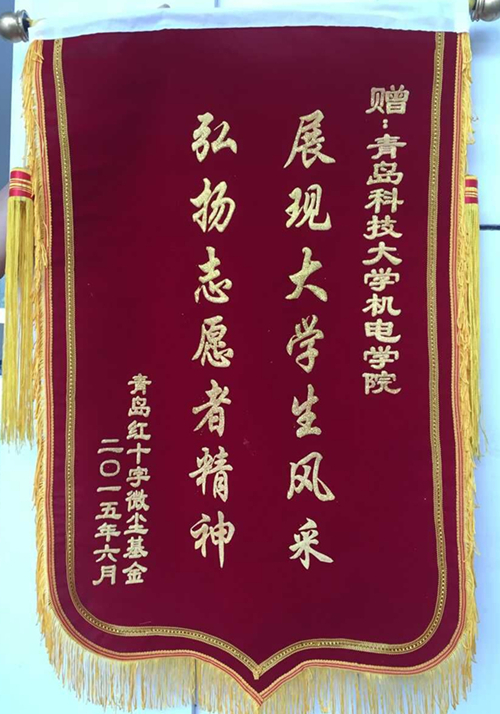 赠：青岛科技大学机电学院
展现大学生风采
弘扬志愿者精神
青岛红十字微尘基金
二〇一五年六月